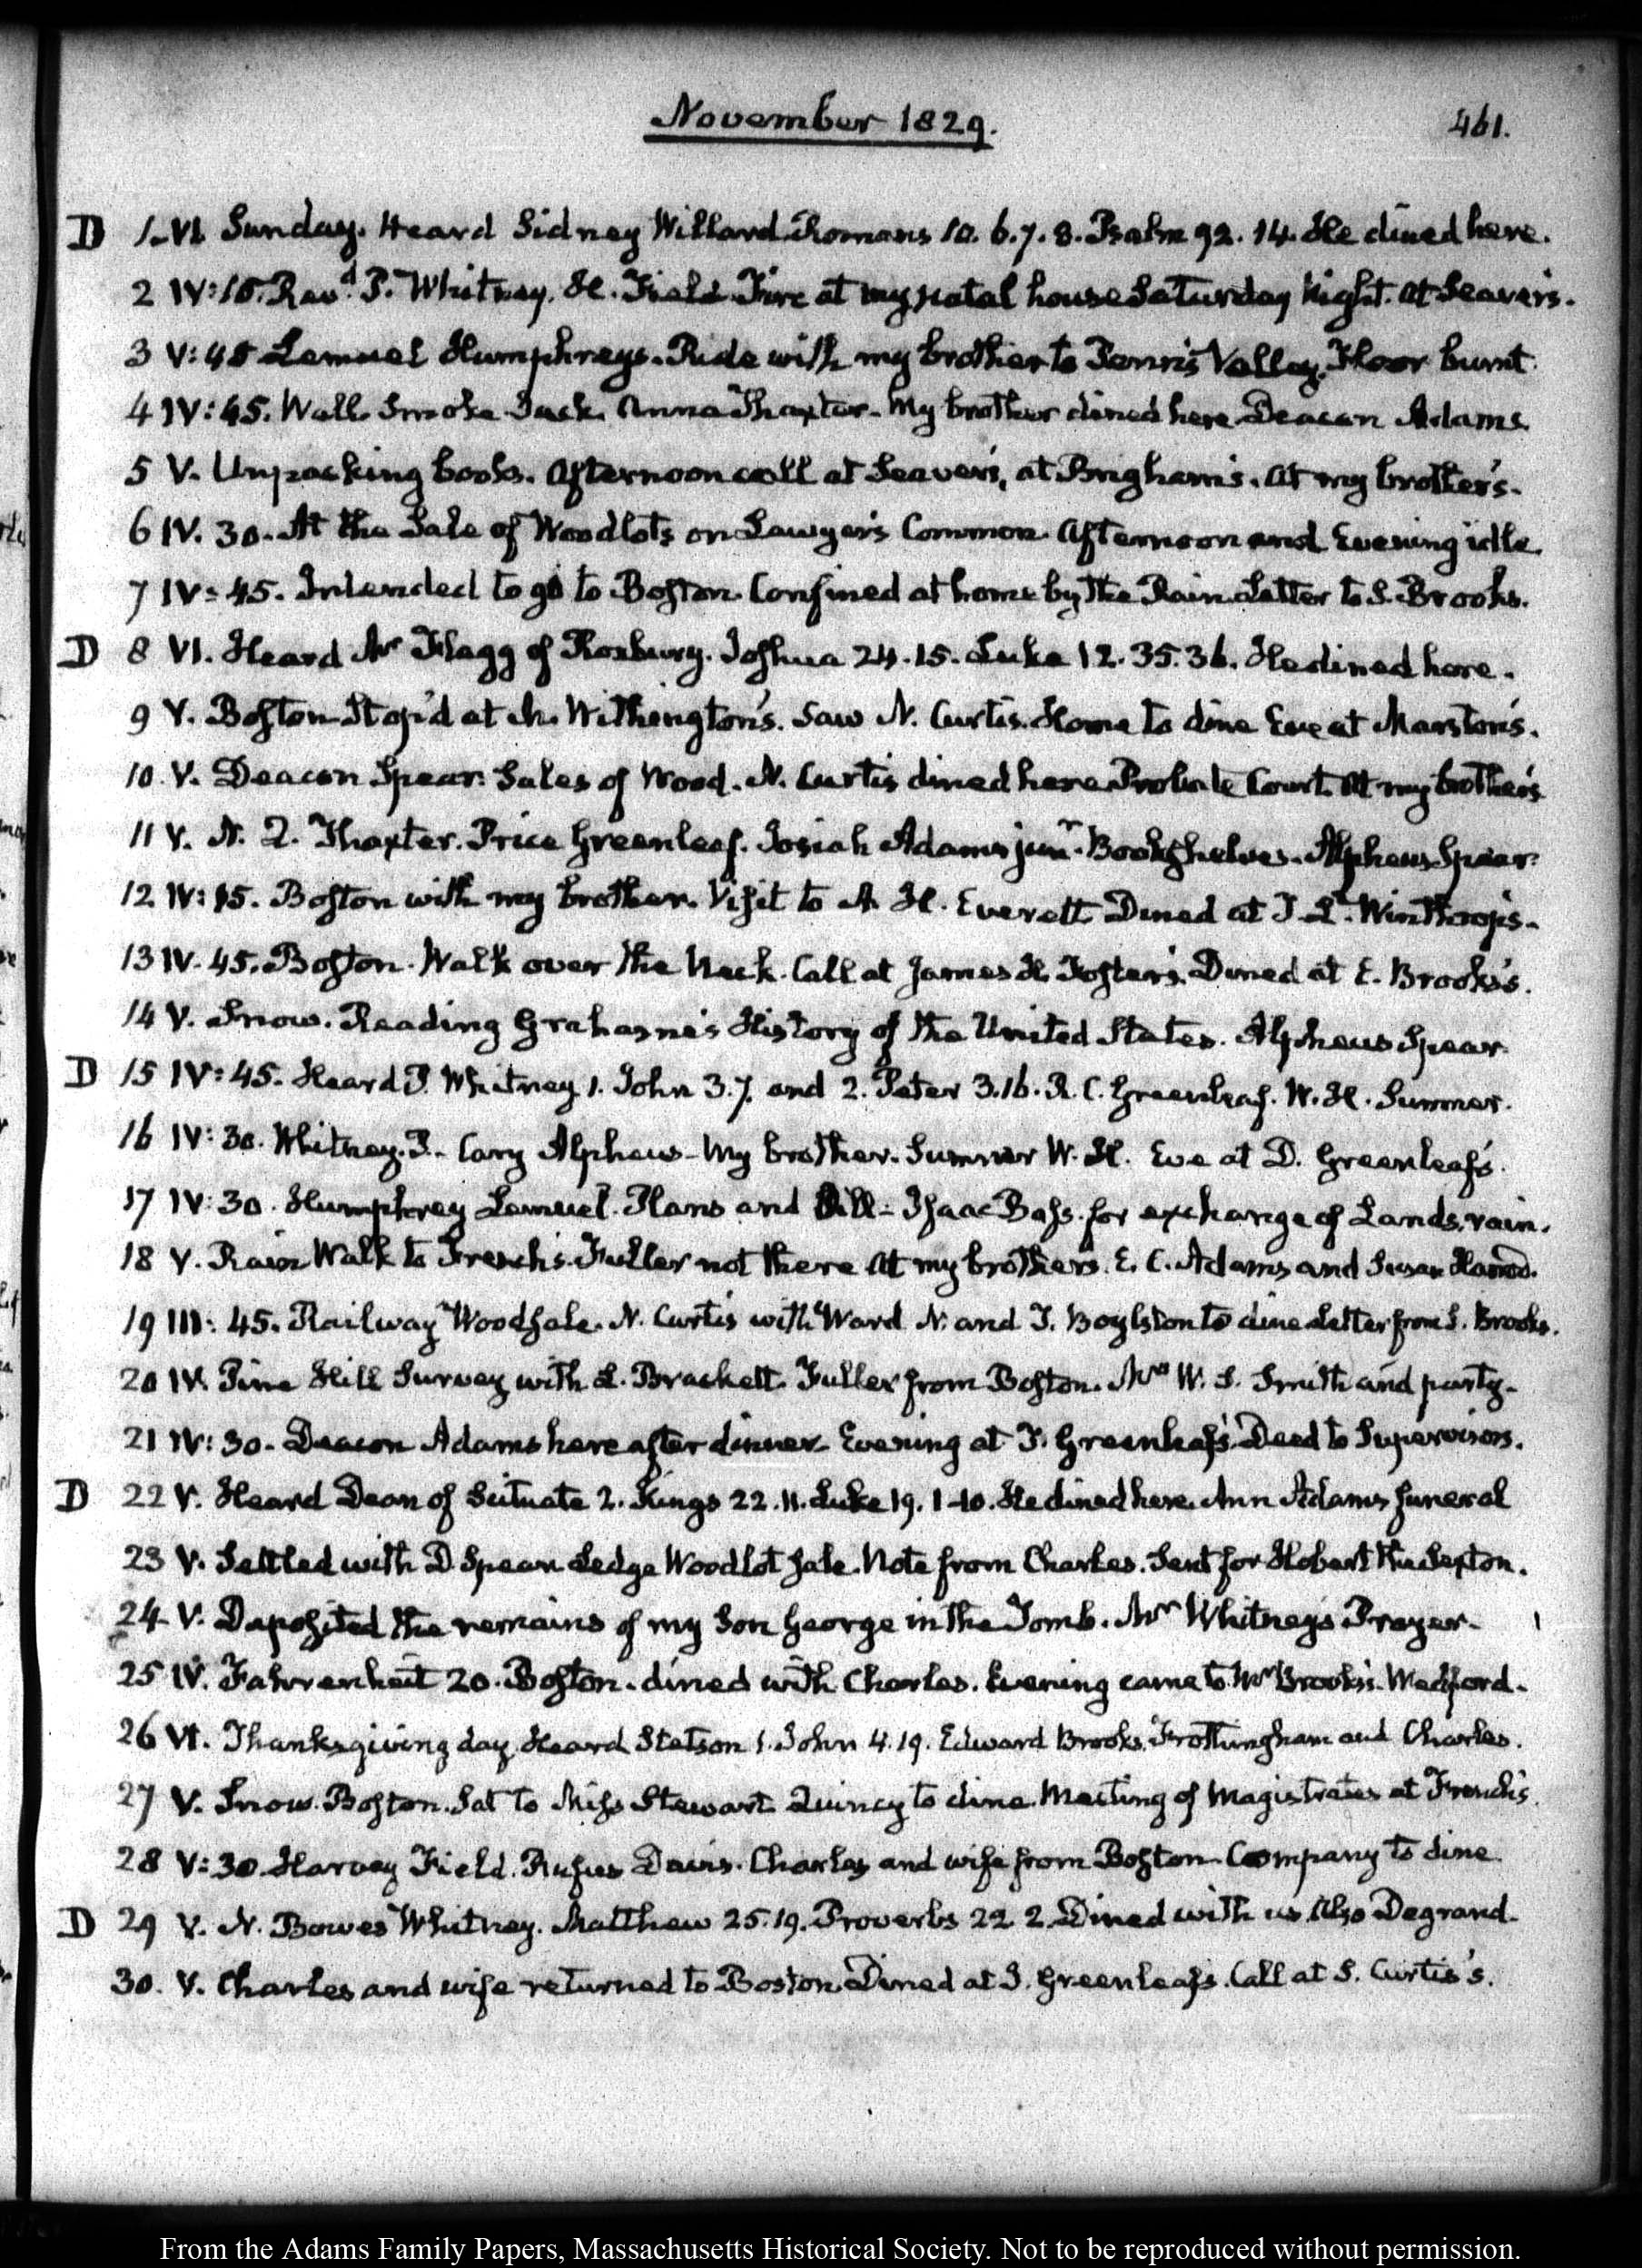 November 1829.
461.
D 1. VI. Sunday. Heard Sidney Willard Romans 10. 6. 7. 8. Psalm 92. 14. He dined here.
2 IV:15. Revd. P. Whitney. H. Field. Fire at my natal house Saturday Night. At Seaver's.
3 V:45 Lemuel Humphreys. Ride with my brother to Penn's Valley. Floor burnt.
4 IV:45. Well. Smoke Jack. Anna Thaxter. My brother dined here Deacon Adams.
5 V. Unpacking books. Afternoon call at Seaver's, at Brigham's. At my brother's.
6 IV. 30. At the Sale of Woodlots on Lawyer's Common. Afternoon and Evening idle.
7 IV:45. Intended to go to Boston. Confined at home by the Rain. Letter to S. Brooks.
D 8 VI. Heard Mr Flagg of Roxbury. Joshua 24. 15. Luke 12. 35. 36. He dined here.
9 V. Boston. Stop'd at M. Withington's. Saw N. Curtis. Home to dine Eve at Marston's.
10. V. Deacon Spear. Sales of Wood. N. Curtis dined here Probate Court. At my brother's
11 V. A. Q. Thaxter. Price Greenleaf. Josiah Adams junr. Bookshelves. Alpheus Spear.
12 IV:15. Boston with my brother. Visit to A. H. Everett Dined at T. L. Winthrop's.
13 IV. 45. Boston. Walk over the Neck. Call at James H. Foster's. Dined at E. Brooks's.
14 V. Snow. Reading Grahame's History of the United States. Alpheus Spear.
D 15 IV:45. Heard P. Whitney 1. John 3. 7. and 2. Peter 3. 16. R. C. Greenleaf. W. H. Sumner.
16 IV:30. Whitney. P. Cary Alpheus. My brother. Sumner W. H. Eve at D. Greenleaf's.
17 IV:30. Humphrey Lemuel. Plans and Bill. Isaac Bass. for exchange of Lands, rain.
18 V. Rain Walk to French's. Fuller not there At my brother's. E. C. Adams and Susan
19 III:45. Railway Woodsale. N. Curtis with Ward N. and T. Boylston to dine Letter from S. Brooks.
20 IV. Pine Hill Survey with L. Brackett. Fuller from Boston. Mrs W. S. Smith and party.
21 IV:30. Deacon Adams here after dinner. Evening at T. Greenleaf's. Deed to Supervisors.
D 22 V. Heard Dean of Scituate 2. Kings 22. 11. Luke 19. 1-10. He dined here. Ann Adams funeral
23 V. Settled with D. Spear Ledge Woodlot sale. Note from Charles. Sent for Hobart the Sexton.
24 V. Deposited the remains of my Son George in the Tomb. Mr Whitney's Prayer.
25 IV. Fahrenheit 20. Boston. dined with Charles. Evening came to Mr Brooks's. Medford.
26 VI. Thanksgiving day. Heard Stetson 1. John 4. 19. Edward Brooks. Frothingham and Charles.
27 V. Snow. Boston. Sat to Miss Stewart. Quincy to dine. Meeting of Magistrates at French's.
28 V:30. Harvey Field. Rufus Davis. Charles and wife from Boston. Company to dine.
D 29 V. N. Bowes Whitney. Matthew 25. 19. Proverbs 22. 2. Dined with us. Also Degrand.
30. V. Charles and wife returned to Boston. Dined at T. Greenleaf's. Call at S. Curtis's.
From the Adams Family Papers, Massachusetts Historical Society. Not to be reproduced without permission.